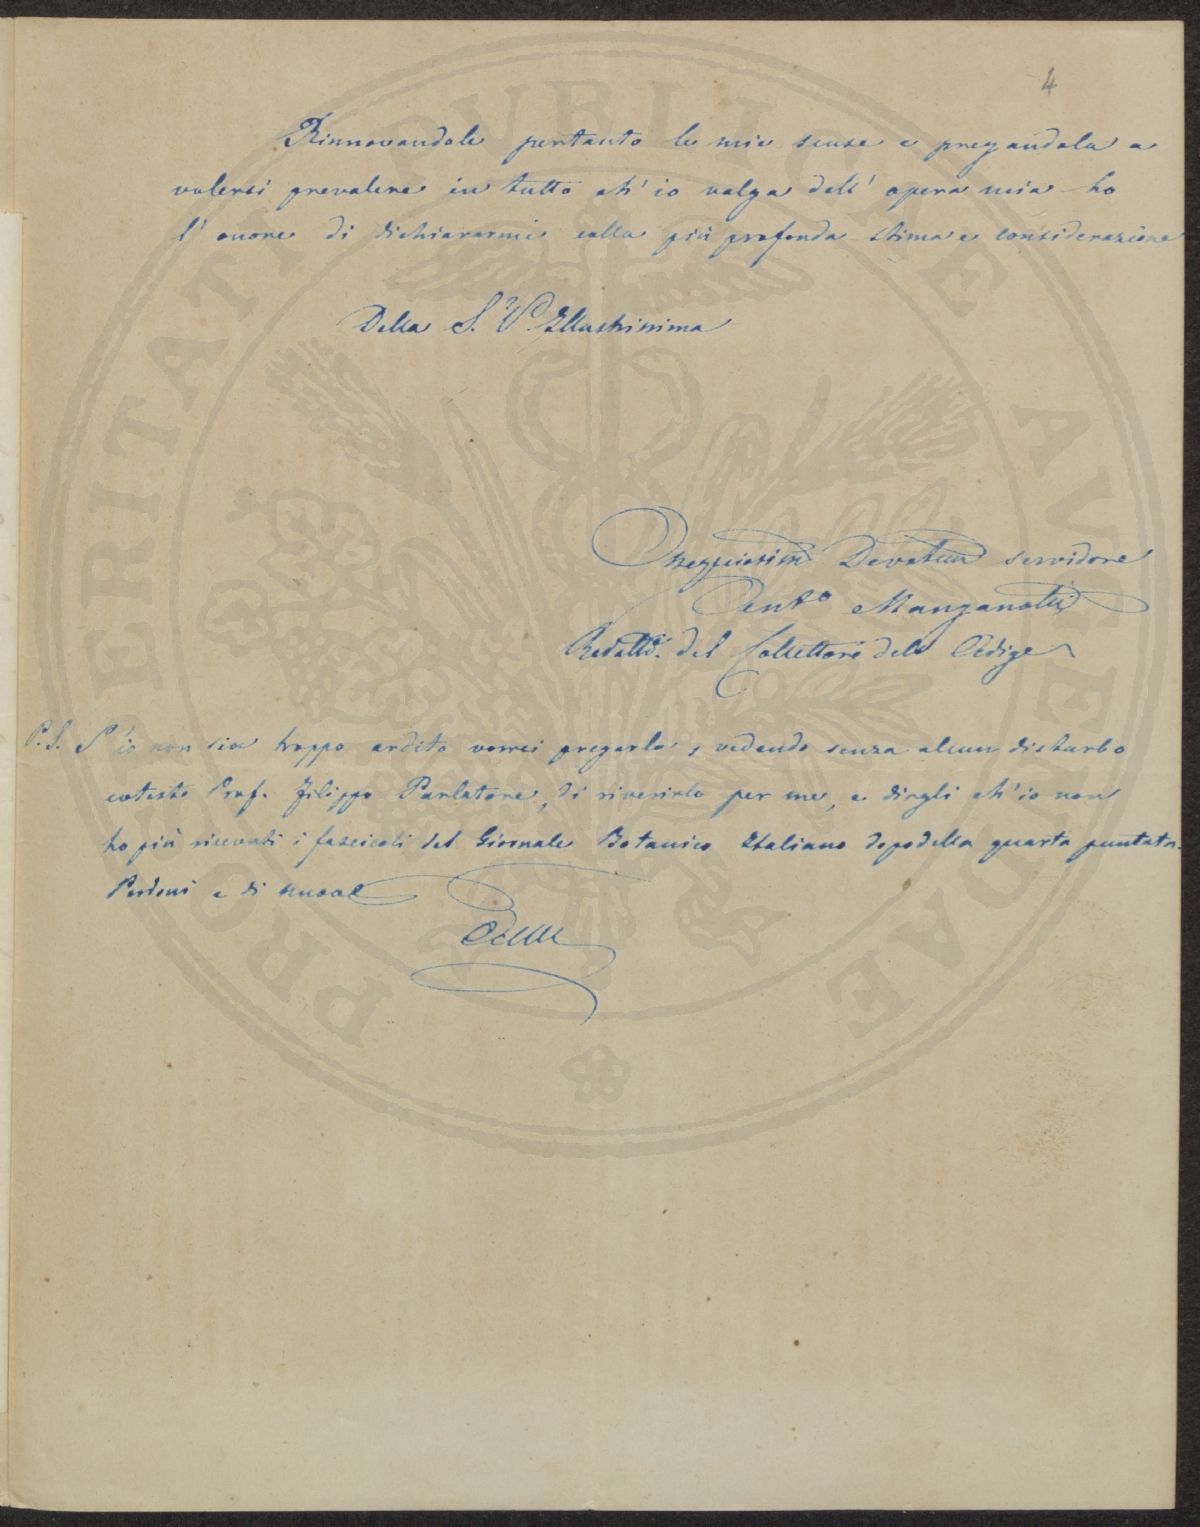 4
Rinnovandole pertanto le mie scuse e pregandola a
volersi prevalere in tutto ch'io valga dell'opera mia ho
l'onore di dichiararmi colla più profonda stima e considerazione
Della S. V. Illustrissima
Devotiss servidore
Ant.o Manganotti
Redatte. del Collettore dell'Adige
P.S. S'io non sia troppo ardito vorrei pregarla, vedendo senza alcun disturbo
cotesto Prof. Filippo Parlatore, di riverirlo per me, e dirgli ch'io non
ho più ricevuti i fascicoli del Giornale Botanico Italiano dopo della quarta puntata.
Perdoni e di nuovo
PRO VERITATE AVE